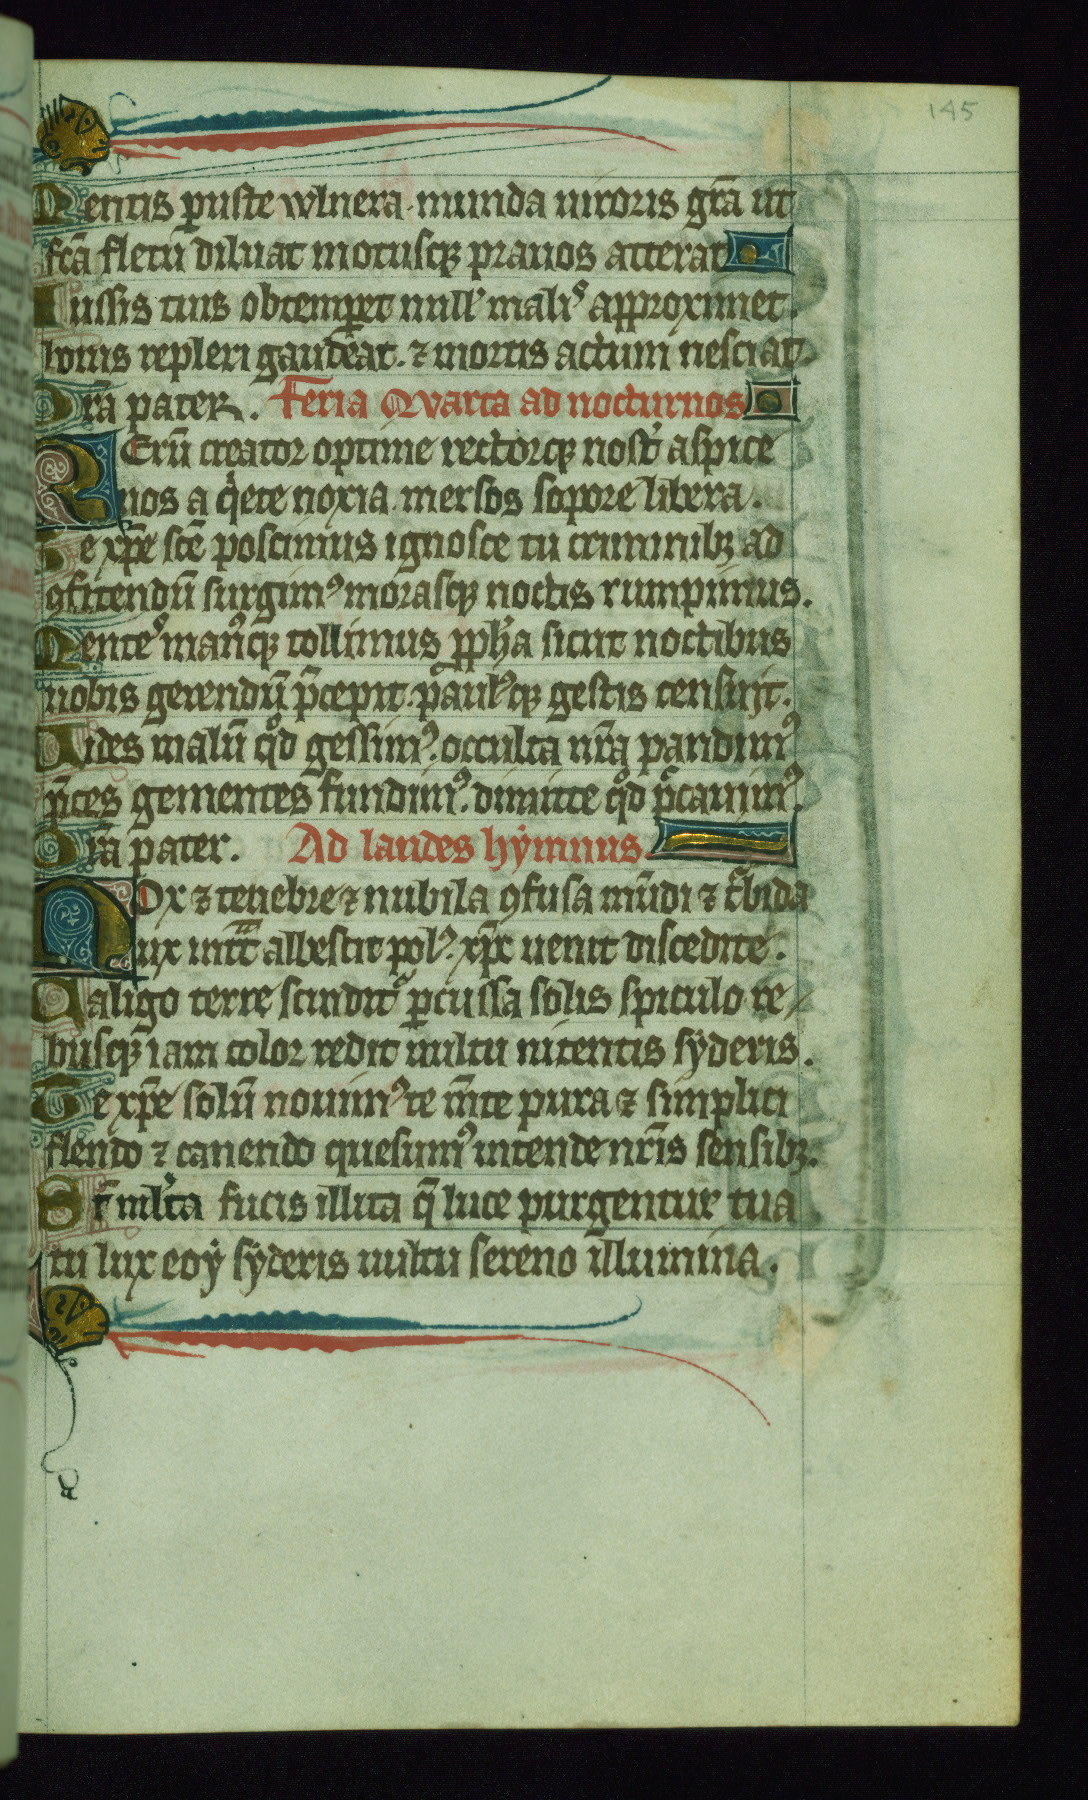 145
Mentis pͥuste wlnera munda uiroris gr̄a ut
fc̄a fletū diluat motusqꝫ prauos atterat
Iussis tuis obtemꝑet null᷒ malis approximet.
bonis repleri gaudeat. ⁊ mortis actum nesciat.
Or̄a pater. Feria Qvarta ad nocturnos
REꝛū creator optime rectorqꝫ nost̉ aspice
nos a qͥete noxia mersos sopore libera.
Te xp̄e sc̄e poscimus ignosce tu criminibꝫ ad
ꝯfitendū surgimꝰ morasqꝫ noctis rumpimus.
Menteˢ manꝰqꝫ tollimus ꝓph̄a sicut noctibus
nobis gerendū p̄cepit. paulꝰqꝫ gestis censuit.
Uides malū qͦd gessimꝰ. occulta nr̄a pandimꝰ
p̄ces gementes fundimꝰ. dimitte qͦd pͨcauimꝰ.
Or̄a pater. Ad laudes hẏmnus.
NOx ⁊ tenebre ⁊ nubila ꝯfusa mūdi ⁊ tͬbida
lux intͣt albescit polꝰ. xp̄c uenit discedite.
Caligo terre scindit᷑ ꝑcussa solis spiculo re/
busqꝫ iam color redit uultu nitentis sẏderis.
Te xp̄e solū nouimꝰ te m̄te pura ⁊ simplici
flendo ⁊ canendo quesumꝰ intende nr̄is sensibꝫ.
St̄ ml̉ta fucis illita q̄ luce purgentur tua
tu lux eoẏ sẏderis uultu sereno illumina.